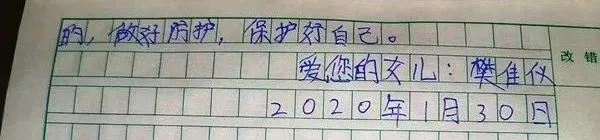 的，做好防护，保护好自己。
改错
爱您的女儿：樊佳仪
2020年1月30日